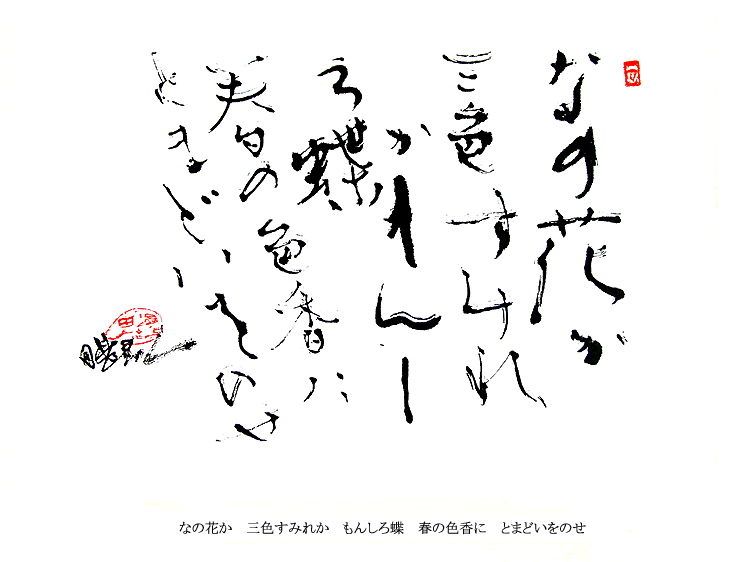 なの花か
三色すみれ
かもんし
ろ蝶
春の色香に
とまどいをのせ
なの花か　三色すみれか　もんしろ蝶　春の色香に　とまどいをのせ